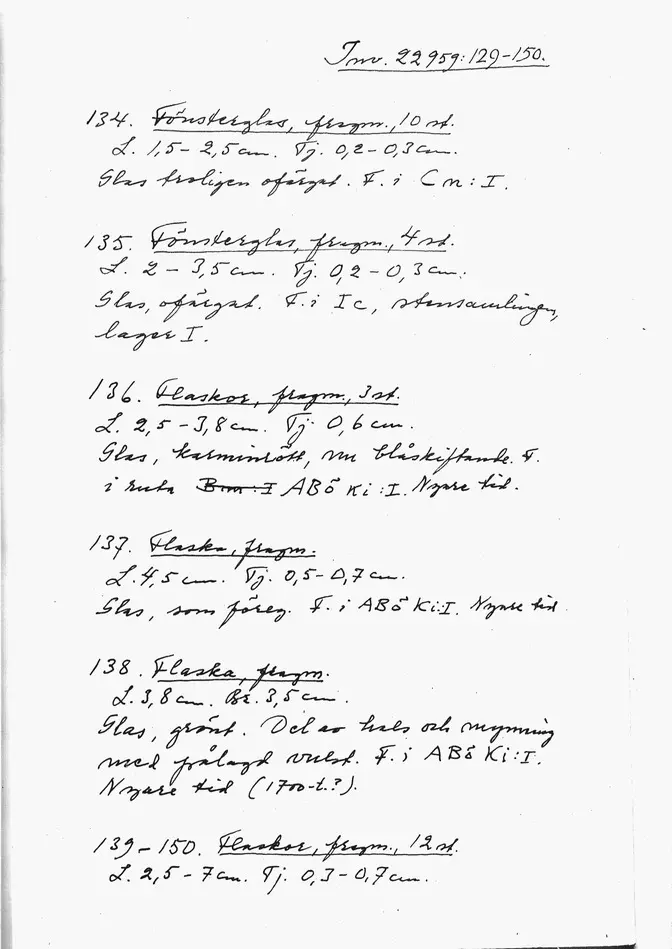 Inv. 22959:129-150.
134. Fönsterglas, fragm., 10 st.
L. 1,5-2,5 cm. Tj. 0,2-0,3 cm.
Glas troligen ofärgat. F. i Cn:I.
135. Fönsterglas, fragm., 4 st.
L. 2-3,5 cm. Tj. 0,2-0,3 cm.
Glas, ofärgat. F. i Ic, stensamlingen,
lager I.
136. Flaskor, fragm., 3 st.
L. 2,5-3,8 cm. Tj. 0,6 cm.
Glas, karminrött, nu blåskiftande. F.
i ruta ABö Ki:I. Nyare tid.
137. Flaska, fragm.
L. 4,5 cm. Tj. 0,5-0,7 cm.
Glas, som föreg. F. i ABö Ki:I. Nyare tid
138. Flaska, fragm.
L. 3,8 cm. Br. 3,5 cm.
Glas, grönt. Del av hals och mynning
med pålagd vulst. F. i ABö Ki:I.
Nyare tid (1700-t.?).
139-150. Flaskor, fragm., 12 st.
L. 2,5-7 cm. Tj. 0,3-0,7 cm.